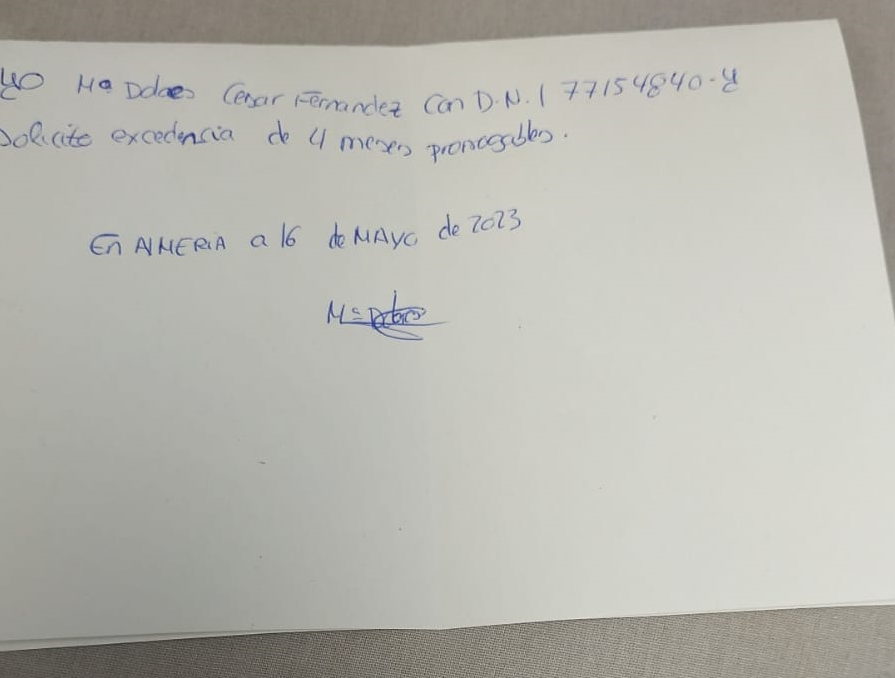 yo Mª Dolores Cesar Fernandez con D.N.I 77154840-Y
Solicito excedencia de 4 meses prorrogables.
En ALMERIA a 16 de MAYO de 2023
Mª Dolores